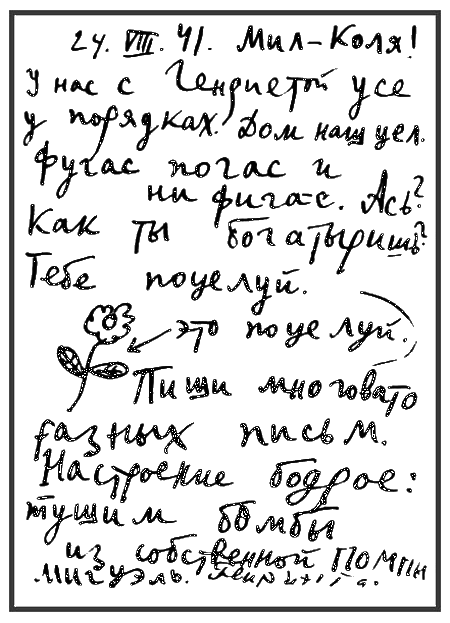 24. VIII. 41. Мил-Коля!
У нас с Генриетой усе
у порядках. Дом наш цел.
Фугас погас и
ни фига-с. Ась?
Как ты богатыришь?
Тебе поцелуй.
это поцелуй.
Пиши многовато
разных письм.
Настроение бодрое:
тушим бомбы
из собственной помпы
Мигуэль.